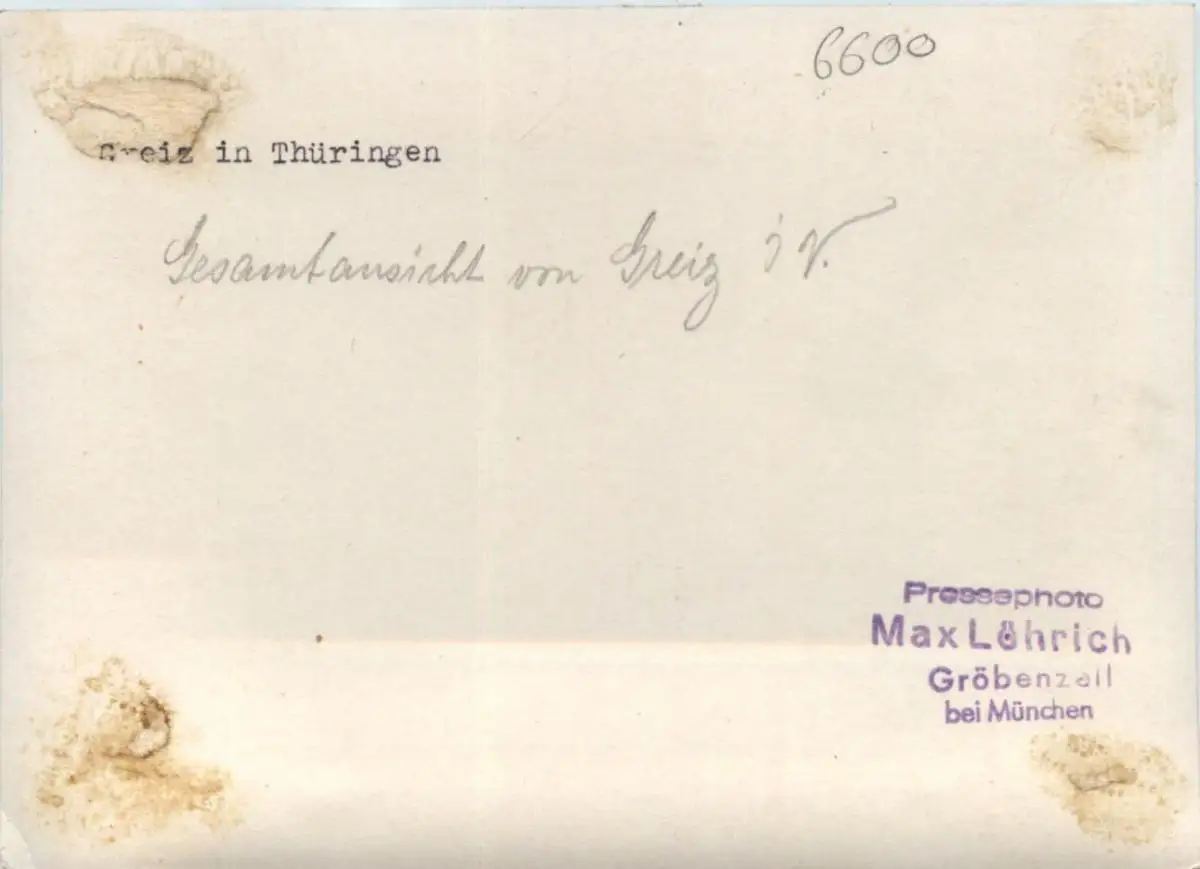 6600
Greiz in Thüringen
Gesamtansicht von Greiz i V.
Pressephoto
Max Löhrich
Gröbenzell
bei München